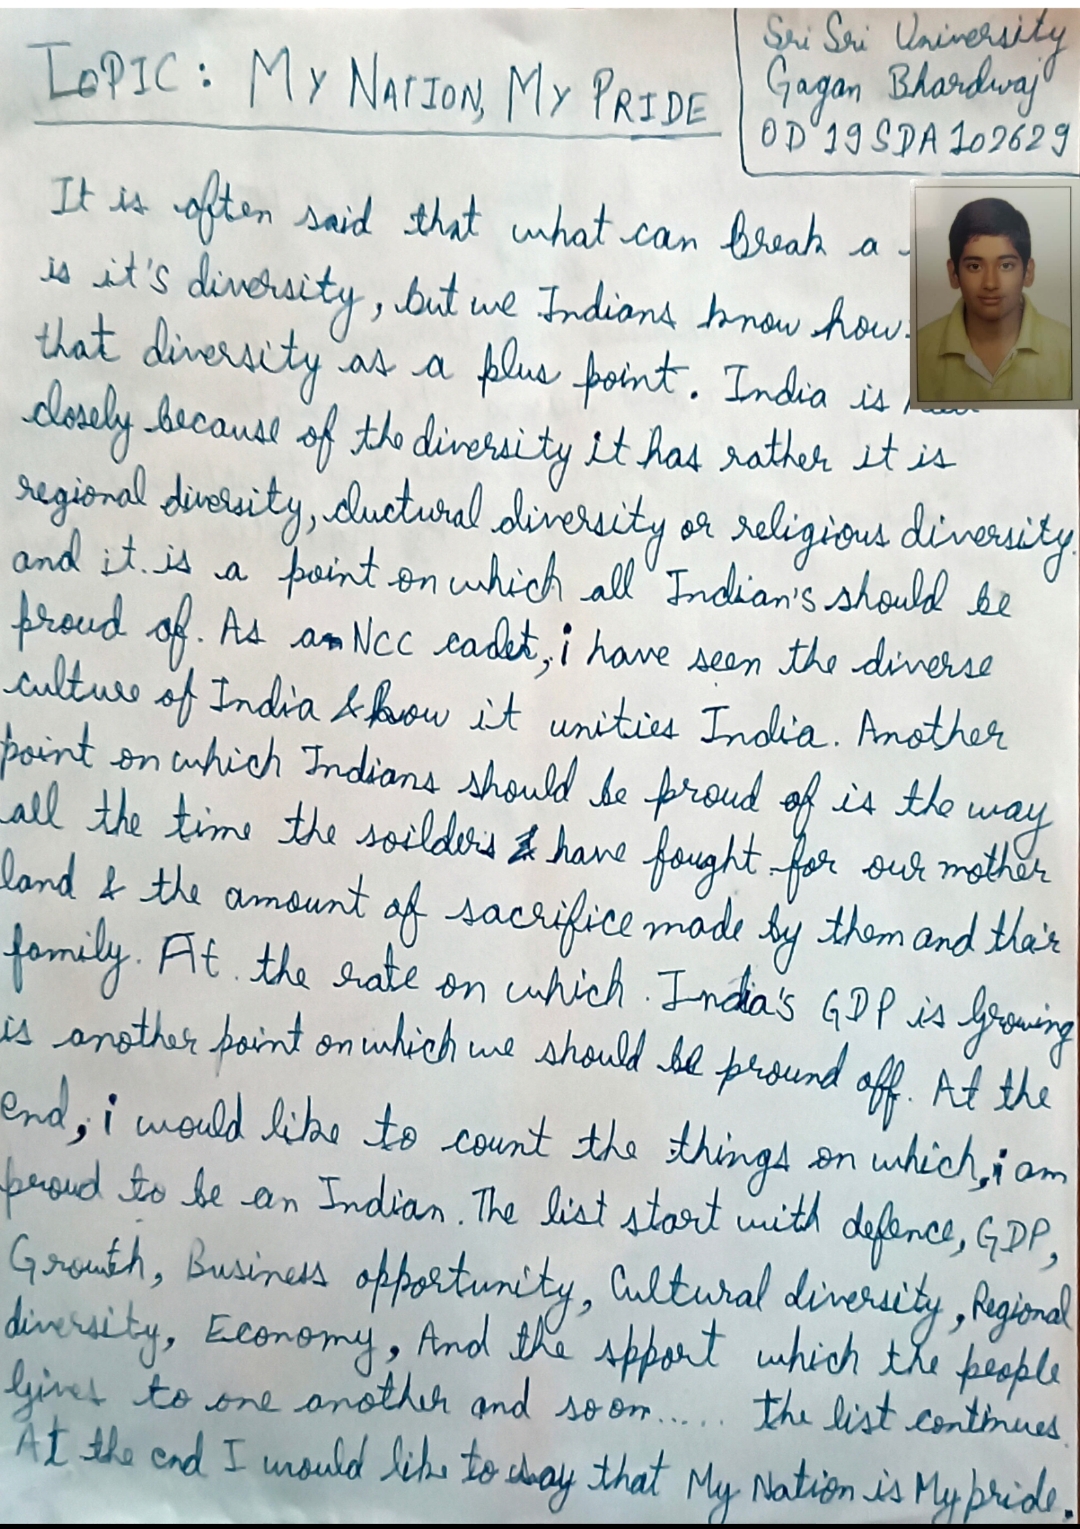 Sri Sri University
Gagan Bhardwaj
OD19SDA102629
TOPIC: MY NATION, MY PRIDE
It is often said that what can break a
is it's diversity, but we Indians know how
that diversity as a plus point. India is
closely because of the diversity it has rather it is
regional diversity, cluctural diversity or religious diversity
and it is a point on which all Indian's should be
proud of. As an NCC cadet, i have seen the diverse
culture of India & how it unities India. Another
point on which Indians should be proud of is the way
all the time the soilders have fought for our mother
land & the amount of sacrifice made by them and their
family. At the rate on which India's GDP is Growing
is another point on which we should be pround off. At the
end, i would like to count the things on which, i am
proud to be an Indian. The list start with defence, GDP,
Growth, Business opportunity, Cultural diversity, Regional
diversity, Economy, And the spport which the people
Gives to one another and so on..... the list continues.
At the end I would like to say that My Nation is My pride.